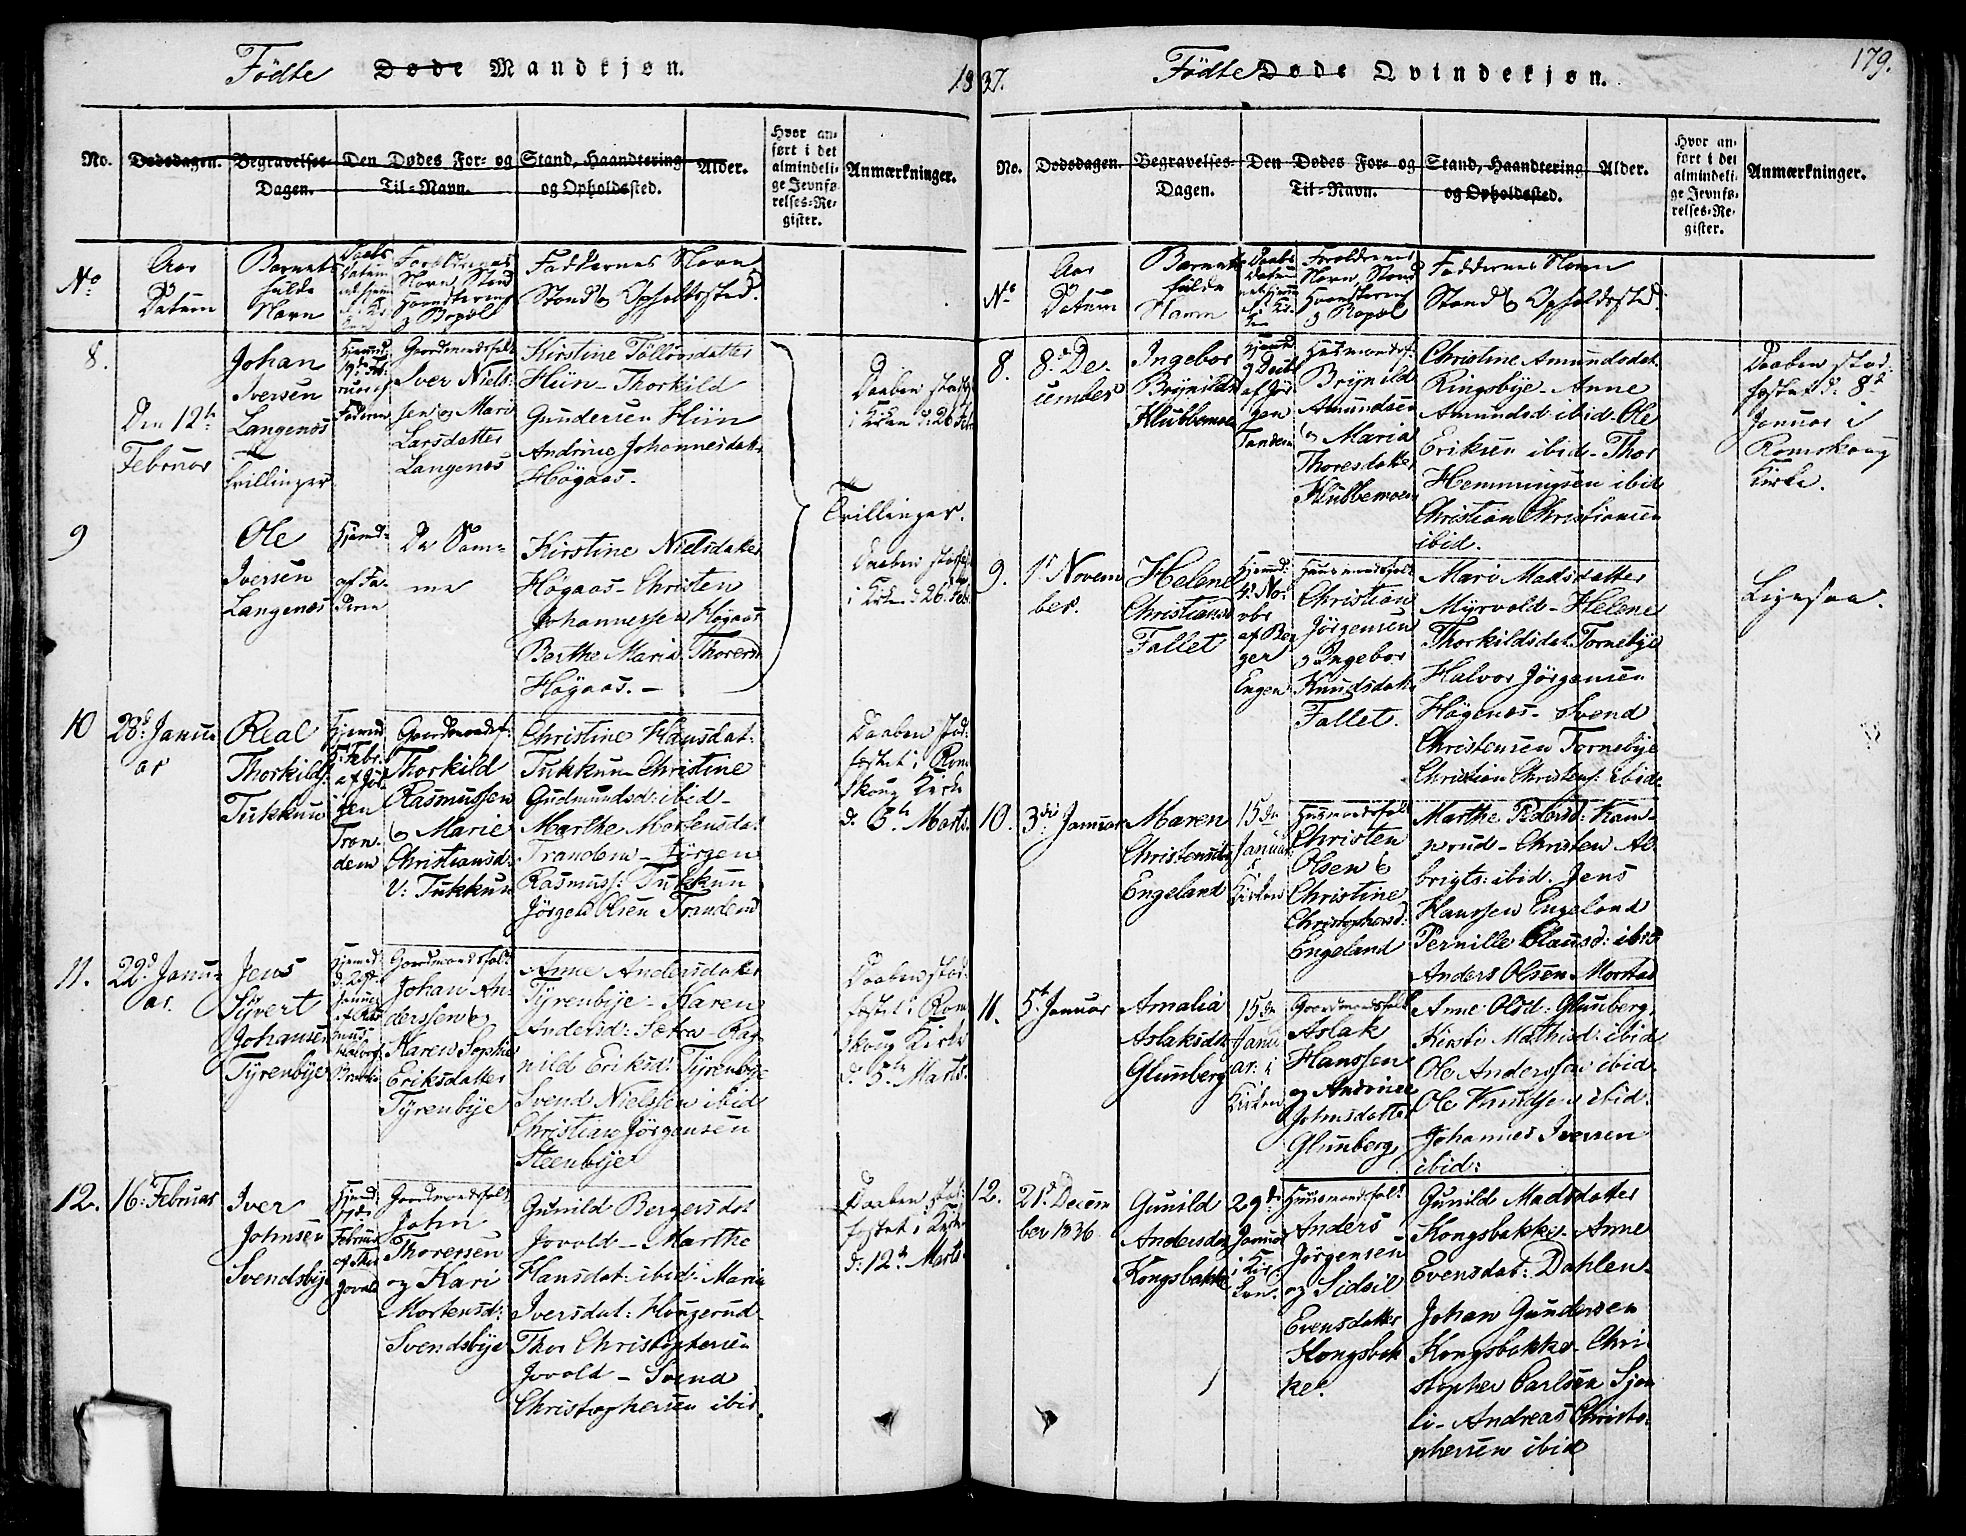 Fødte Døde Mandkjøn.
1837.
No.
Dødsdagen.
Begravelses-
Dagen.
Den Dødes For- og
Til-Navn.
Stand, Haandtering
og Opholdssted.
Alder.
Hvor an-
ført i det
almindeli-
ge Jevnfø-
relses-Re-
gister.
Anmærkninger.
No
Aar
Datum
Barnets
fulde
Navn
Daabs
Datum
Forældrenes
Navn, Stand
Haandtering
& Bopæl
Faddernes Navn
Stand & Opholdssted.
8.
Den 12te
Februar
Johan
Iversen
Langenæs
Trillinger
Hjemmd.
Faderen
Gaardmandsfolk
Iver Niels-
sen og Mari
Larsdatter
Langenæs
Kirstine Tollovsdatter
Hiin - Thorkild
Gundersen Hiin
Andrine Johannesdatr
Høgaas.
Daaben stadf.
i Kirken d. 26 Feb.
Trillinger.
9
Ole
Iversen
Langenæs
Hjemd.
af Fa-
deren
De Sam-
me
Kirstine Nielsdatter
Høgaas - Christen
Johannessen Høgaas
Berthe Maria Thoresd.
Høgaas. -
Daaben stadf.
i Kirken d. 26 Feb.
10
28de Janu-
ar
Real
Thorkilds.
Tukkun
Hjemmd.
5te Febr.
af Jør-
gen
Tran-
dem
Gaardmandsf.
Thorkild
Rasmussen
& Marie
Christiansd.
V. Tukkun
Christine Hansdat:
Tukkun - Christine
Gudmundsd: ibid -
Marthe Mortensdat
Trandem - Jørgen
Rasmuss: Tukkun
Jørgen Olsen Trandem
Daaben stad-
fæstet i Rom-
skoug Kirke
d. 5te Marts.
11.
22d Janu-
ar.
Jens
Syvert
Johansen
Tyrenbye
Hjemmd.
Gaardmandsfolk
Johan An-
derssen og
Karen Sophie
Eriksdatter
Tyrenbye
Anne Andersdatter
Tyrenbye - Karen
Andersd: Sætra - Rag-
nild Eriksd: Tyrenbye
Svend Nielssen ibid
Christian Jørgensen
Steenbye
Daaben stad-
fæstet i Rom-
skoug Kirke
d. 5te Marts.
12.
16. Februar
Iver
Johnsen
Svendsbye
Hjemd.
Februar
Jovald
Gaardmandsfolk
John
Thoressen
og Kari
Mortensd:
Svendsbye
Gunild Bergersdat
Jovald - Marthe
Hansdat: ibid: Maria
Iversdat: Hougerud -
Thor Christophersen
Jovald - Svend
Christophersen ibid.
Daaben stad-
fæstet i Kirken
d. 12te Marts
Fødte Døde Qvindekjøn.
179.
No.
Dødsdagen.
Begravelses-
Dagen.
Den Dødes For- og
Til-Navn.
Stand, Haandtering
og Opholdssted.
Alder.
Hvor an-
ført i det
almindeli-
ge Jevnfø-
relses-Re-
gister.
Anmærkninger.
No
Aar
Datum
Barnets
fulde
Navn
Daabs
Datum
Forældrenes
Navn, Stand
Haandtering
& Bopæl
Faddernes Navn
Stand & Opholdssted.
8.
8de De-
cember
Ingebor
Brynilds
Klubbemoen
Hjemmd.
af Jør-
gen
Tandem
Husmandsf.
Brynild
Amundsen
& Maria
Thoresdatter
Klubbemoen
Christine Amundsdat.
Ringsbye - Anne
Amundsd: ibid - Ole
Eriksen ibid - Thor
Hemmingsen ibid
Christian Christiansen
ibid.
Daaben stad-
fæstet d. 8de
Januar i
Romskoug
Kirke.
9.
1st Novem
ber.
Helene
Christiansd
Fallet
Hjemd:
4. No-
vbr
af Ber
ger
Engen
Huusmandsfolk
Christian
Jørgensen
& Ingebor
Knudsdat.
Fallet.
Mari Madsdatter
Myrvold - Helene
Thorkildsdat. Tornebye
Halvor Jørgensen
Høgenæs - Svend
Christensen Tornebye
Christian Christens: ibid.
Ligesaa.
10.
3die Januar
Maren
Christensdr
Engeland
15de
Januar
i
Kirken
Husmandsfolk
Christen
Olsen &
Christine
Christophersd:
Engeland
Marthe Pedersd: Kam-
perud - Christen Al-
brigts: ibid. Jens
Hanssen Engeland
Pernille Clausd: ibid
Anders Olsen Mortsd
11.
5te Januar
Amalia
Aslaksdr
Glumberg
15de
Janu-
ar i
Kirken
Gaardmandsfolk
Aslak
Hanssen
og Andrinee
Johnsdatter
Glumberg
Anne Olsd: Glumberg,
Kirsti Mathisd: ibid
Ole Anderssen ibid.
Ole Knudsen ibid.
Johannes Iversen
ibid:
12.
21d Decem
ber 1836
Gunild
Andersdr
Kongsbakke
29de
Januar
i Kir-
ken.
Huusmandsfolk
Anders
Jørgensen
og Sidsil
Evensdatter
Kongsbak
ke.
Gunild Madsdatter
Kongsbakke - Anne
Evensdat: Dahlen -
Johan Gundersen
Kongsbakke - Chri-
stopher Carlsen Sjøn
li - Andreas Christo-
phersen ibid